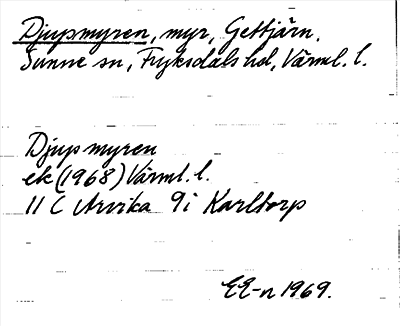 Djupmyren, myr, Gettjärn,
Sunne sn, Fryksdals hd, Värml. l.
Djupmyren
ek (1968) Värml. l.
11 C Arvika 9i Karltorp
EE-n 1969.